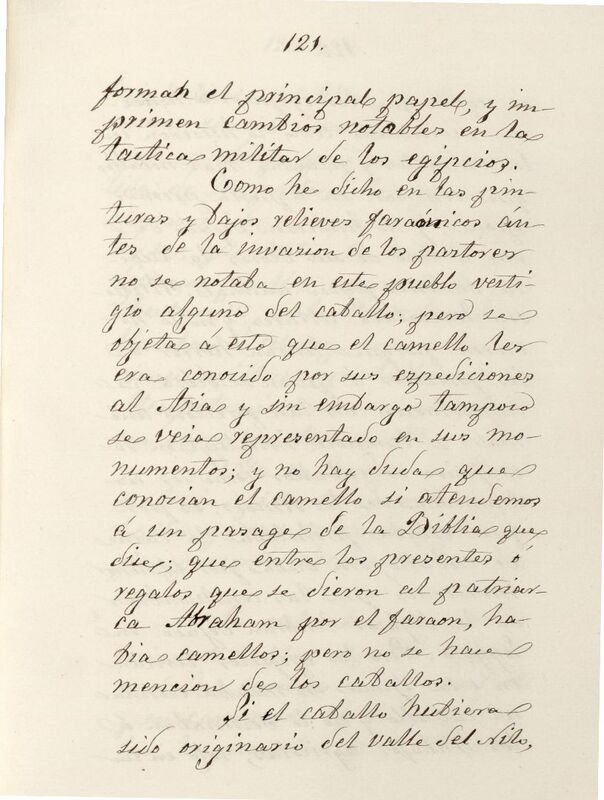 121.
forman el principal papel, y im-
primen cambios notables en la
tactica militar de los egipcios.
Como he dicho en las pin-
turas y bajos relieves faraónicos án-
tes de la invasion de los pastores
no se notaba en este pueblo vesti-
gio alguno del caballo; pero se
objeta á esto que el camello les
era conocido por sus espediciones
al Asia y sin embargo tampoco
se veia representado en sus mo-
numentos; y no hay duda que
conocian el camello si atendemos
á un pasage de la Biblia que
dise; que entre los presentes ó
regalos que se dieron al patriar-
ca Abraham por el faraon, ha-
bia camellos; pero no se hace
mencion de los caballos.
Si el caballo hubiera
sido originario del valle del Nilo,